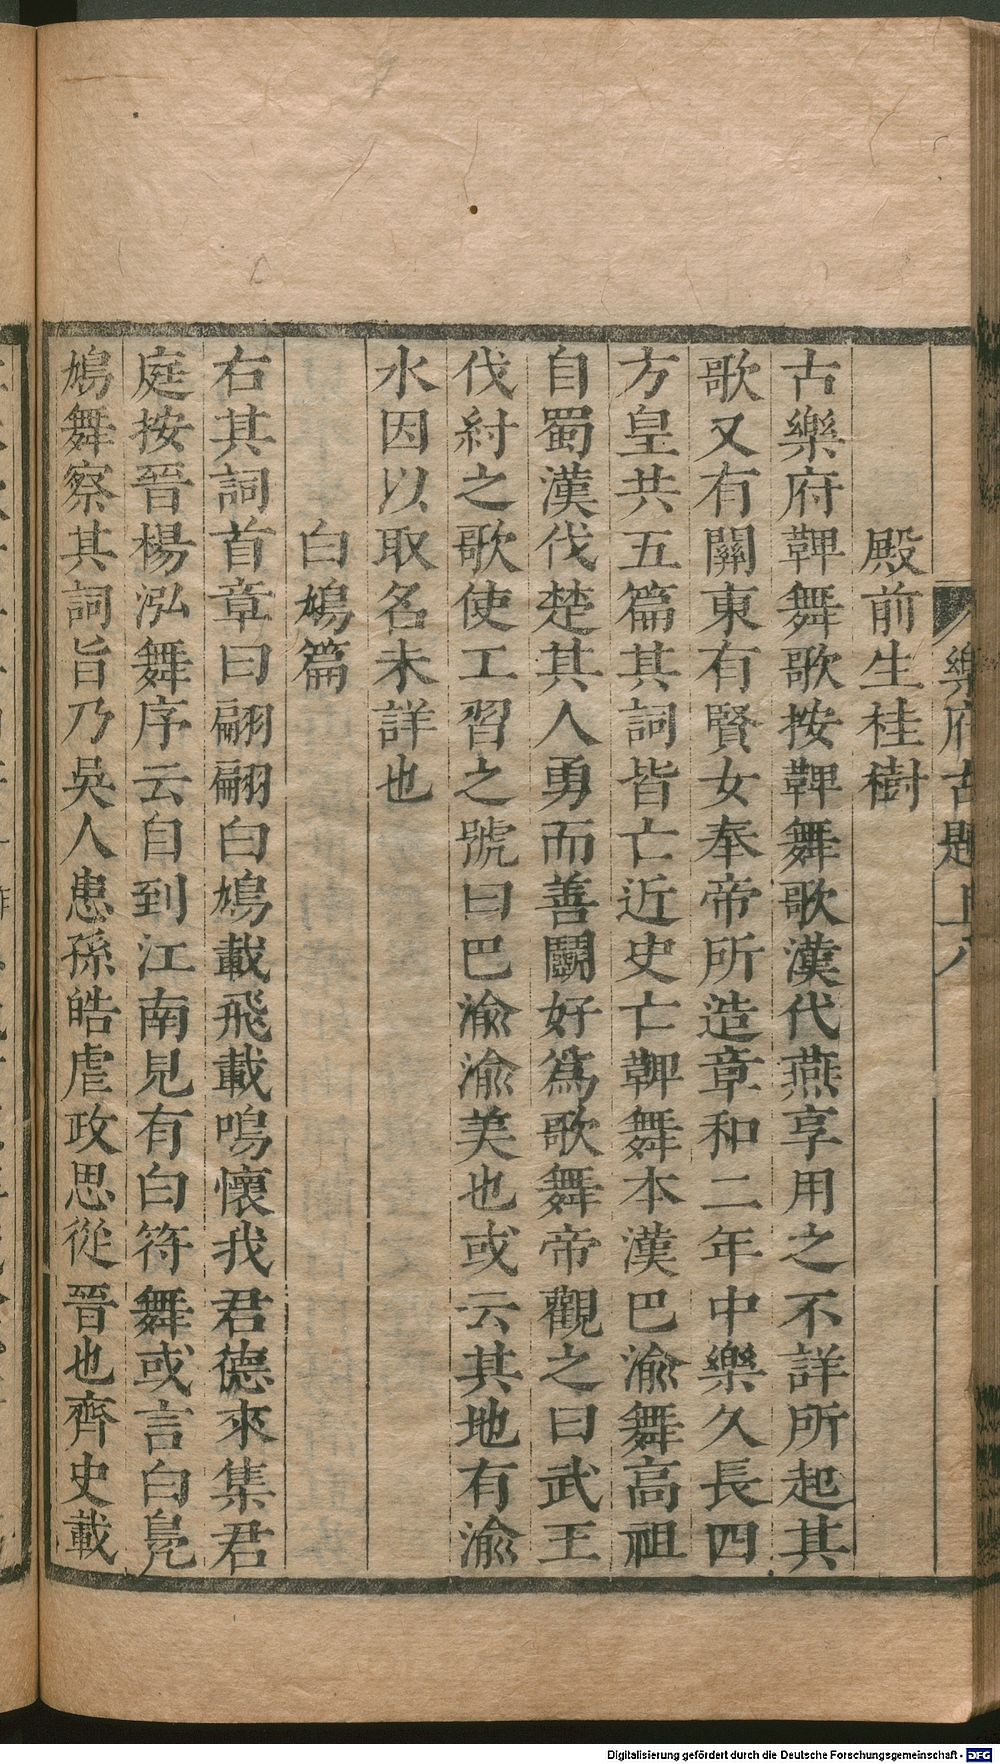 樂府古題上八
殿前生桂樹
古樂府鞞舞歌按鞞舞歌漢代燕享用之不詳所起其
歌又有關東有賢女奉帝所造章和二年中樂久長四
方皇共五篇其詞皆亡近史亡鞞舞本漢巴渝舞高祖
自蜀漢伐楚其人勇而善鬭好爲歌舞帝觀之曰武王
伐紂之歌使工習之號曰巴渝渝美也或云其地有渝
水因以取名未詳也
白鳩篇
右其詞首章曰翩翩白鳩載飛載鳴懷我君德來集君
庭按晉楊泓舞序云自到江南見有白符舞或言白鳧
鳩舞察其詞旨乃吳人患孫皓虐政思從晉也齊史載
Digitalisierung gefördert durch die Deutsche Forschungsgemeinschaft - DFG